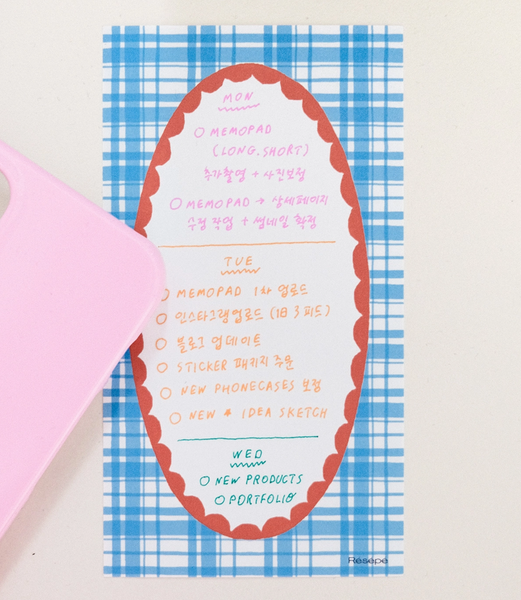 MON
O MEMOPAD
(LONG, SHORT)
추가촬영 + 사진보정
O MEMOPAD → 상세페이지
수정 작업 + 썸네일 확정
TUE
O MEMOPAD 1차 업로드
O 인스타그램업로드 (1日 3피드)
O 블로그 업데이트
O STICKER 패키지 주문
O NEW PHONECASES 보정
O NEW * IDEA SKETCH
WED
O NEW PRODUCTS
O PORTFOLIO
Résépé